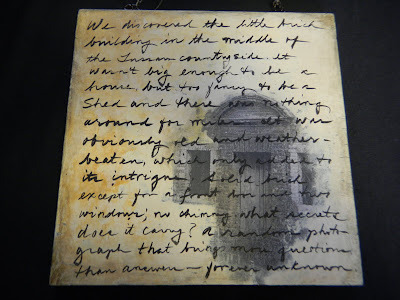 We discovered the little brick
building in the middle of
the Tuscan countryside. It
wasn't big enough to be a
house, but too fancy to be a
shed and there was nothing
around for miles. It was
obviously old and weather-
beaten, which only added to
its intrigue. Solid brick
except for a front door and two
windows; no chimney. What secrets
does it carry? A random photo-
graph that brings more questions
than answers — forever unknown.